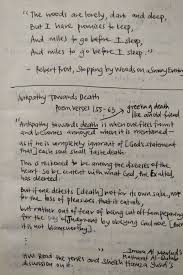 "The woods are lovely, dark and deep,
But I have promises to keep,
And miles to go before I sleep,
And miles to go before I sleep."
- Robert Frost, Stopping by Woods on a Snowy Evening
Antipathy Towards Death
Poem verses 155-63 → greeting death like an old friend
"Antipathy towards death is when one flees from it
and becomes annoyed when it is mentioned —
as if he is completely ignorant of [God's statement
that] each soul shall taste death.
This is reckoned to be among the diseases of the
heart - so be content with what God, the Exalted,
has decreed.
But if one detests [death] not for its own sake, not
for the loss of pleasures that it entails,
but rather out of fear of being cut off from preparing
for the by obeying God
it is not blameworthy
- Imam al Mawlud's
Matharat al-Qulub
Read the verses and sheikh Hamza Yusuf's
discussion on it.